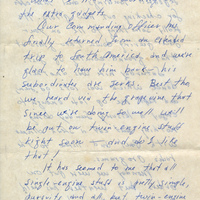 the extra gadgets.
Our Commanding Officer has
finally returned from an extended
trip to South America, and we're
glad to have him back — his
subordinates are jerks. Best tho
we heard via the grapevine that
since we're doing so well we'll
be put on twin-engine stuff
right soon — and do I like
that!
It has seemed to me that
single-engine stuff is fully simple,
and all, but twin-engine